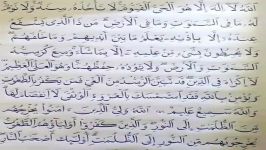 اللَّهُ لَا إِلَٰهَ إِلَّا هُوَ الْحَيُّ الْقَيُّومُ لَا تَأْخُذُهُ سِنَةٌ وَلَا نَوْمٌ
لَهُ مَا فِي السَّمَٰوَاتِ وَمَا فِي الْأَرْضِ مَنْ ذَا الَّذِي يَشْفَعُ
عِنْدَهُ إِلَّا بِإِذْنِهِ يَعْلَمُ مَا بَيْنَ أَيْدِيهِمْ وَمَا خَلْفَهُمْ
وَلَا يُحِيطُونَ بِشَيْءٍ مِنْ عِلْمِهِ إِلَّا بِمَا شَاءَ وَسِعَ كُرْسِيُّهُ
السَّمَٰوَاتِ وَالْأَرْضَ وَلَا يَئُودُهُ حِفْظُهُمَا وَهُوَ الْعَلِيُّ الْعَظِيمُ
لَا إِكْرَاهَ فِي الدِّينِ قَدْ تَبَيَّنَ الرُّشْدُ مِنَ الْغَيِّ فَمَنْ يَكْفُرْ بِالطَّٰغُوتِ
وَيُؤْمِنْ بِاللَّهِ فَقَدِ اسْتَمْسَكَ بِالْعُرْوَةِ الْوُثْقَىٰ لَا انْفِصَامَ لَهَا
وَاللَّهُ سَمِيعٌ عَلِيمٌ اللَّهُ وَلِيُّ الَّذِينَ آمَنُوا يُخْرِجُهُمْ
مِنَ الظُّلُمَٰتِ إِلَى النُّورِ وَالَّذِينَ كَفَرُوا أَوْلِيَاؤُهُمُ الطَّٰغُوتُ
يُخْرِجُونَهُمْ مِنَ النُّورِ إِلَى الظُّلُمَٰتِ أُولَٰئِكَ أَصْحَٰبُ النَّارِ